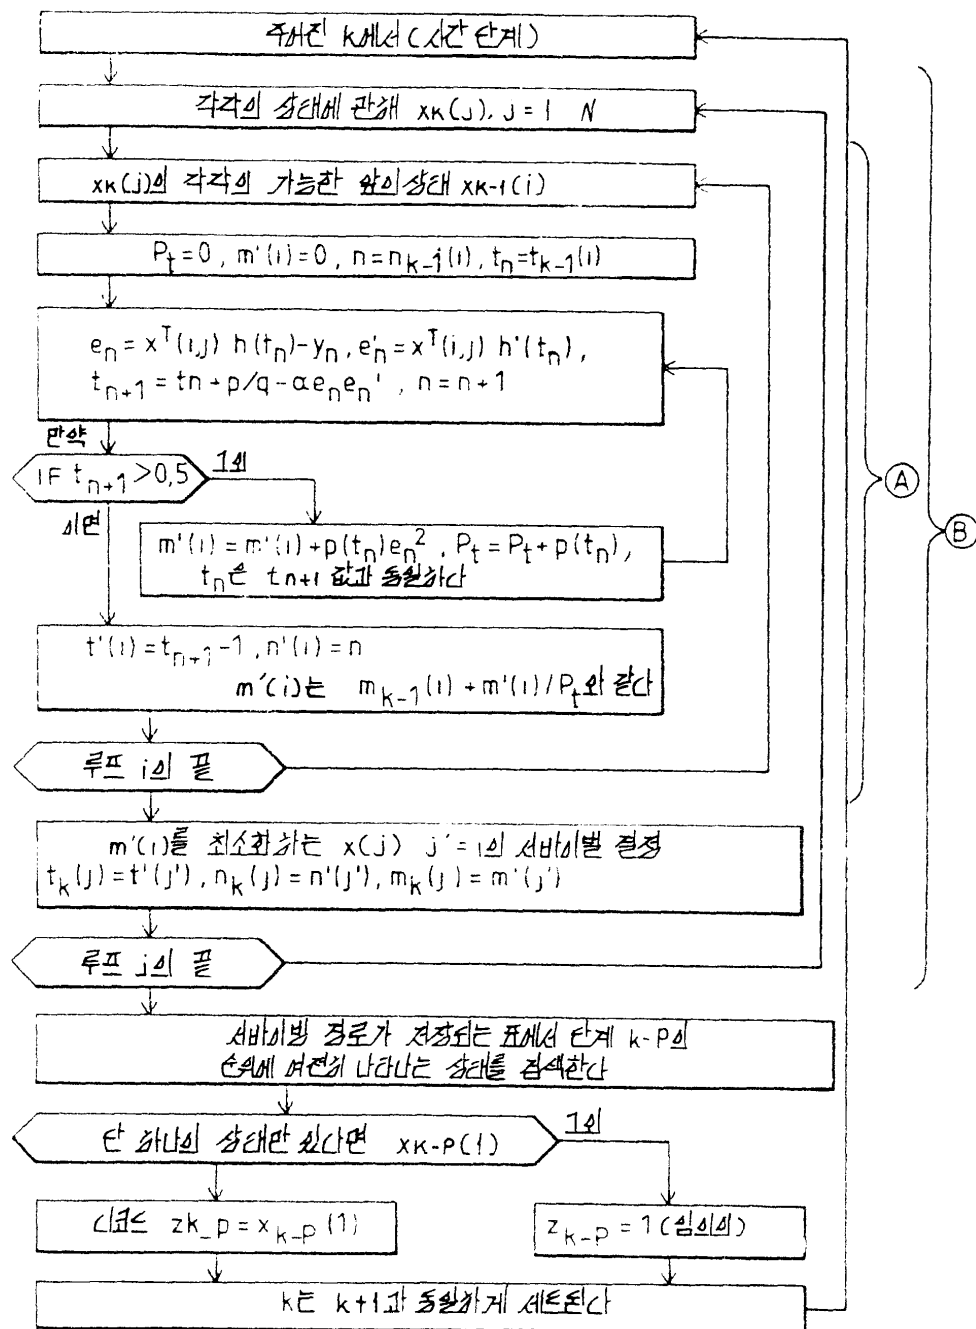 주어진 k에서 (시간 단계)
각각의 상태에 관해 xk(j), j = 1 N
xk(j)의 각각의 가능한 앞의 상태 xk-1(i)
Pt=0, m'(i)=0, n=nk-1(i), tn=tk-1(i)
en = xT(i,j) h(tn)-yn, e'n = xT(i,j) h'(tn),
tn+1 = tn + p/q - αenen', n = n+1
만약
IF tn+1 >0,5
그외
이면
m'(i) = m'(i) + p(tn)en2, Pt = Pt + p(tn),
tn은 tn+1 값과 동일하다
t'(i) = tn+1-1, n'(i) = n
m'(i)는 mk-1(i) + m'(i)/Pt와 같다
루프 i의 끝
m'(i)를 최소화하는 x(j) j' = i의 서바이벌 결정
tk(j) = t'(j'), nk(j) = n'(j'), mk(j) = m'(j')
루프 j의 끝
서바이벌 경로가 저장되는 표에서 단계 k-P의
순위에 여전히 나타나는 상태를 검색한다
단 하나의 상태만 있다면 xk-P(1)
그외
디코드 zk-p = xk-p(1)
zk-p = 1 (임의의)
k는 k+1과 동일하게 세트된다
A
B